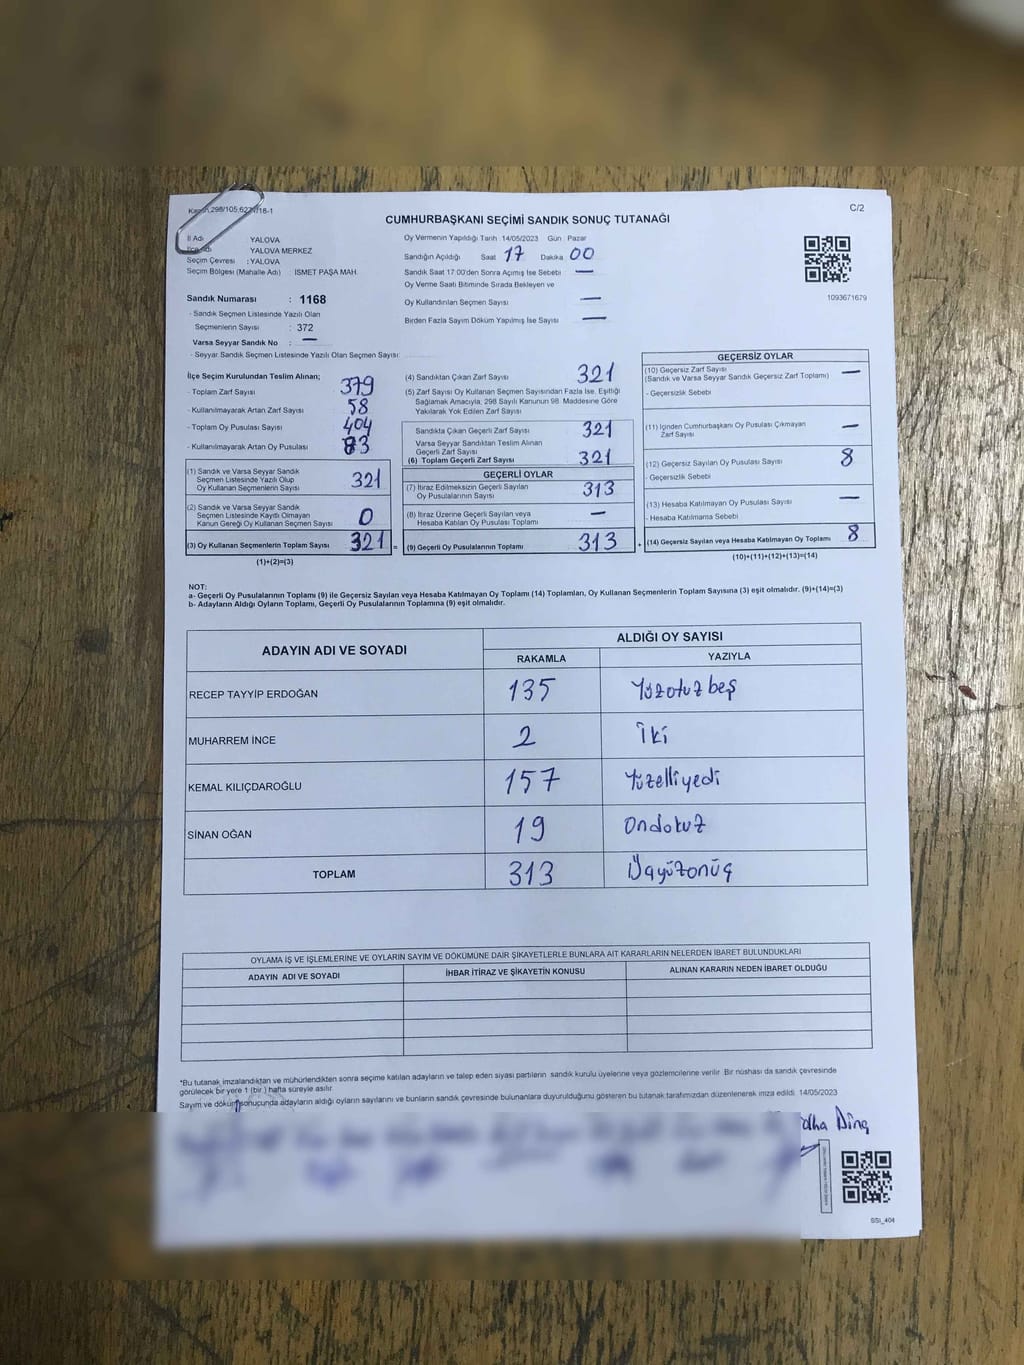 298/105,627
718-1
C/2
CUMHURBAŞKANI SEÇİMİ SANDIK SONUÇ TUTANAĞI
İl Adı YALOVA
YALOVA MERKEZ
Seçim Çevresi : YALOVA
Seçim Bölgesi (Mahalle Adı) İSMET PAŞA MAH.
Oy Vermenin Yapıldığı Tarih :14/05/2023 Gün : Pazar
Sandığın Açıldığı Saat 17 Dakika 00
Sandık Saat 17:00'den Sonra Açılmış İse Sebebi —
Oy Verme Saati Bitiminde Sırada Bekleyen ve
Oy Kullandırılan Seçmen Sayısı —
Birden Fazla Sayım Döküm Yapılmış İse Sayısı —
1093671679
Sandık Numarası : 1168
- Sandık Seçmen Listesinde Yazılı Olan
Seçmenlerin Sayısı : 372
Varsa Seyyar Sandık No : —
- Seyyar Sandık Seçmen Listesinde Yazılı Olan Seçmen Sayısı:
İlçe Seçim Kurulundan Teslim Alınan;
- Toplam Zarf Sayısı 379
- Kullanılmayarak Artan Zarf Sayısı 58
- Toplam Oy Pusulası Sayısı 404
- Kullanılmayarak Artan Oy Pusulası 83
(1) Sandık ve Varsa Seyyar Sandık
Seçmen Listesinde Yazılı Olup
Oy Kullanan Seçmenlerin Sayısı 321
(2) Sandık ve Varsa Seyyar Sandık
Seçmen Listesinde Kayıtlı Olmayan
Kanun Gereği Oy Kullanan Seçmen Sayısı 0
(3) Oy Kullanan Seçmenlerin Toplam Sayısı 321 =
(1)+(2)=(3)
(4) Sandıktan Çıkan Zarf Sayısı 321
(5) Zarf Sayısı Oy Kullanan Seçmen Sayısından Fazla İse, Eşitliği
Sağlamak Amacıyla, 298 Sayılı Kanunun 98. Maddesine Göre
Yakılarak Yok Edilen Zarf Sayısı
Sandıkta Çıkan Geçerli Zarf Sayısı 321
Varsa Seyyar Sandıktan Teslim Alınan
Geçerli Zarf Sayısı
(6) Toplam Geçerli Zarf Sayısı 321
GEÇERLİ OYLAR
(7) İtiraz Edilmeksizin Geçerli Sayılan
Oy Pusulalarının Sayısı 313
(8) İtiraz Üzerine Geçerli Sayılan veya
Hesaba Katılan Oy Pusulası Toplamı —
(9) Geçerli Oy Pusulalarının Toplamı 313 +
GEÇERSİZ OYLAR
(10) Geçersiz Zarf Sayısı
(Sandık ve Varsa Seyyar Sandık Geçersiz Zarf Toplamı) —
- Geçersizlik Sebebi
(11) İçinden Cumhurbaşkanı Oy Pusulası Çıkmayan
Zarf Sayısı —
(12) Geçersiz Sayılan Oy Pusulası Sayısı 8
- Geçersizlik Sebebi
(13) Hesaba Katılmayan Oy Pusulası Sayısı —
- Hesaba Katılmama Sebebi
(14) Geçersiz Sayılan veya Hesaba Katılmayan Oy Toplamı 8
(10)+(11)+(12)+(13)=(14)
NOT:
a- Geçerli Oy Pusulalarının Toplamı (9) ile Geçersiz Sayılan veya Hesaba Katılmayan Oy Toplamı (14) Toplamları, Oy Kullanan Seçmenlerin Toplam Sayısına (3) eşit olmalıdır. (9)+(14)=(3)
b- Adayların Aldığı Oyların Toplamı, Geçerli Oy Pusulalarının Toplamına (9) eşit olmalıdır.
ADAYIN ADI VE SOYADI ALDIĞI OY SAYISI
RAKAMLA YAZIYLA
RECEP TAYYİP ERDOĞAN 135 Yüzotuzbeş
MUHARREM İNCE 2 İki
KEMAL KILIÇDAROĞLU 157 Yüzelliyedi
SİNAN OĞAN 19 Ondokuz
TOPLAM 313 Üçyüzonüç
OYLAMA İŞ VE İŞLEMLERİNE VE OYLARIN SAYIM VE DÖKÜMÜNE DAİR ŞİKAYETLERLE BUNLARA AİT KARARLARIN NELERDEN İBARET BULUNDUKLARI
ADAYIN ADI VE SOYADI İHBAR İTİRAZ VE ŞİKAYETİN KONUSU ALINAN KARARIN NEDEN İBARET OLDUĞU
*Bu tutanak imzalandıktan ve mühürlendikten sonra seçime katılan adayların ve talep eden siyasi partilerin sandık kurulu üyelerine veya gözlemcilerine verilir. Bir nüshası da sandık çevresinde
görülecek bir yere 1 (bir ) hafta süreyle asılır.
Sayım ve döküm sonucunda adayların aldığı oyların sayılarını ve bunların sandık çevresinde bulunanlara duyurulduğunu gösteren bu tutanak tarafımızdan düzenlenerek imza edildi. 14/05/2023
SSI_404